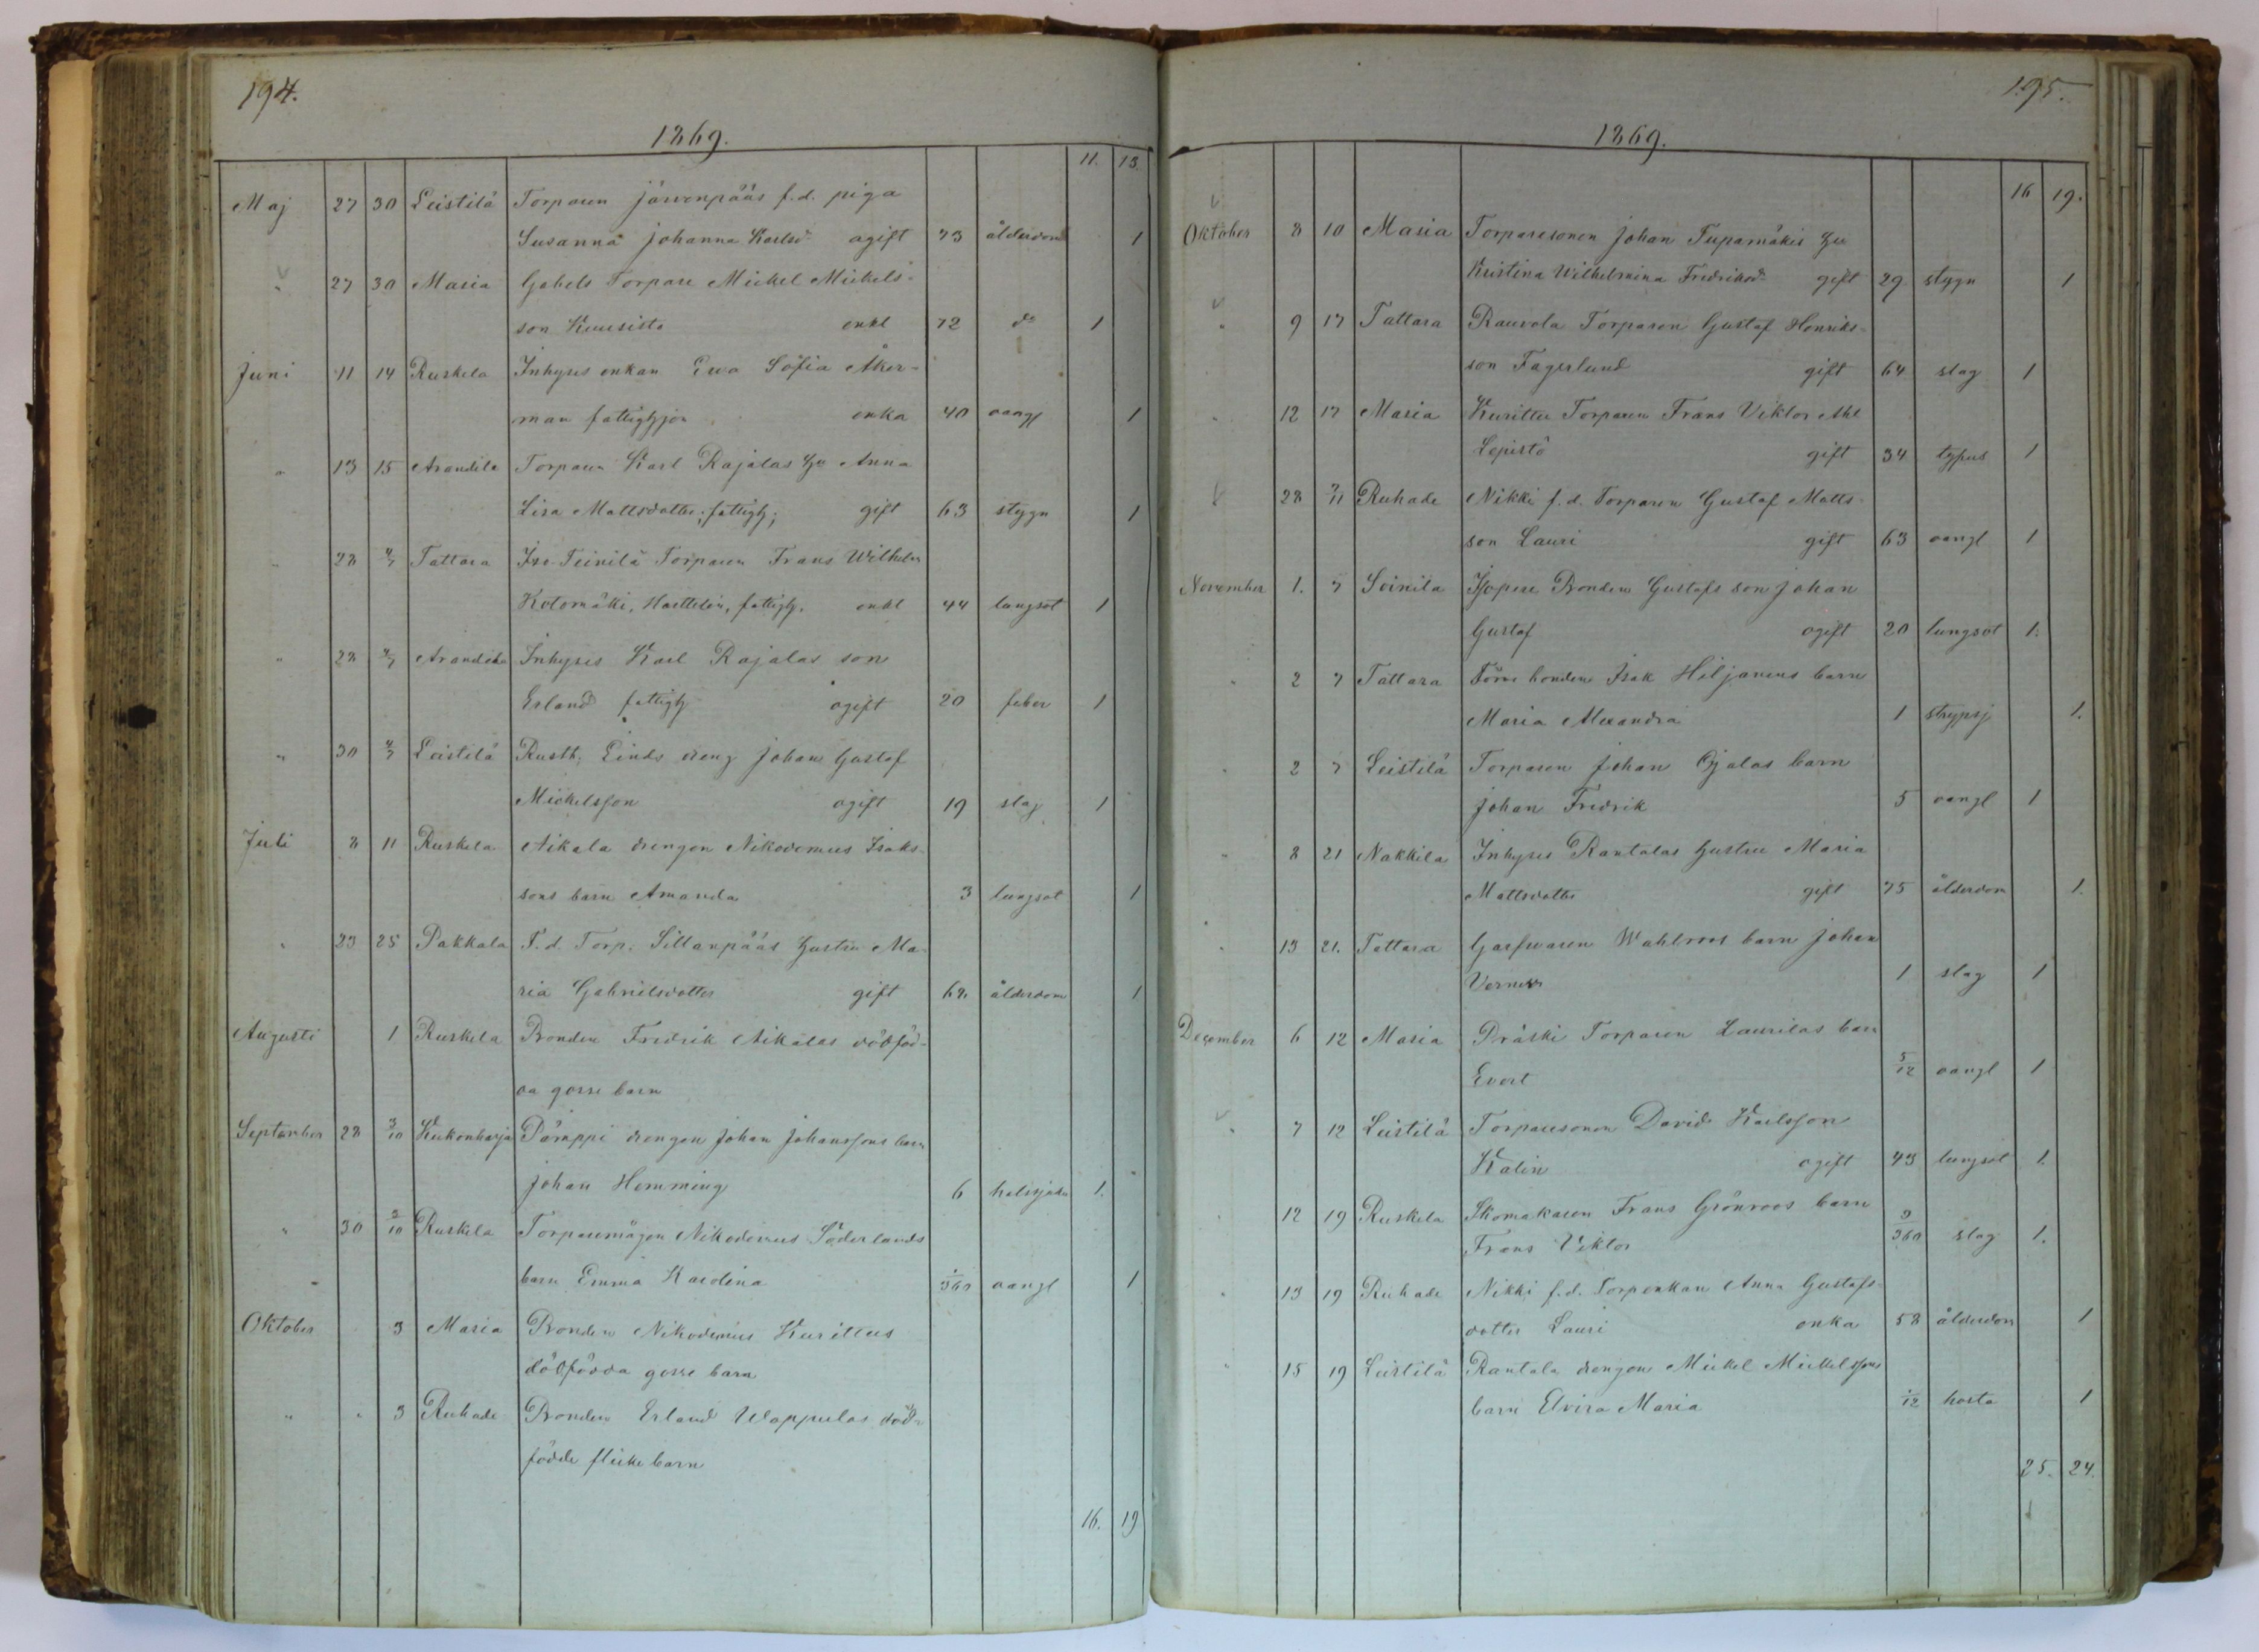 194.
1869.
11. 13.
Maj 27 30 Leistilä Torparen Järvenpääs f.d. piga
Susanna Johanna Karlsd. ogift 73 ålderdom 1
" 27 30 Masia Gabels Torpare Mickel Mickels-
son Kuusisto enkl 72 do 1
Juni 11 14 Ruskela Inhyses enkan Eva Sofia Åker-
man fattighjon enka 40 oangf 1
" 13 15 Arandila Torparen Karl Rajalas Hu Anna
Lisa Mattsdotter, fattigh; gift 63 stygn 1
" 28 4/7 Tattara Iso-Teinilä Torparen Frans Wilhelm
Kotomäki, fattigh. enkl 44 lungsot 1
" 28 4/7 Arandila Inhyses Karl Rajalas son
Erland fattigh ogift 20 feber 1
" 30 4/7 Leistilä Rusth. Einds dreng Johan Gustaf
Mickelsson ogift 19 slag 1
Juli 8 11 Ruskela Aikala drengen Nikodemus Isaks-
sons barn Amanda 3 lungsot 1
" 23 25 Pakkala F.d. Torp. Sillanpääs hustru Ma-
ria Gabrielsdotter gift 62 ålderdom 1
Augusti 1 Ruskela Bonden Fredrik Aikalas dödföd-
da gosse barn
September 28 3/10 Kukonharja Pämppi drengen Johan Johanssons barn
Johan Hemming 6 halssjuka 1.
" 30 3/10 Ruskela Torparemågen Nikodemus Söderlunds
barn Emma Karolina 1/360 oangf 1
Oktober " 3 Masia Bonden Nikodemus Kurittus
dödfödda gosse barn
" " 3 Ruhade Bonden Erland Wappulas död-
födde flicke barn
16. 19
195.
1869.
16 19.
Oktober 8 10 Masia Torparesonen Johan Tupamäkis Hu
Kristina Wilhelmina Fredriksd. gift 29 stygn 1
" 9 17 Tattara Rauvola Torparen Gustaf Henriks-
son Fagerlund gift 64 slag 1
" 12 17 Masia Kurittu Torparen Frans Viktor
Lepistö gift 34 typus 1
28 7/11 Ruhade Nikki f.d. Torparen Gustaf Matts-
son Lauri gift 63 oangf 1
November 1. 7 Soinila Bonden Gustafs son Johan
Gustaf ogift 20 lungsot 1.
" 2 7 Tattara bonden Isak Hiljanens barn
Maria Alexandra 1 strypsj 1.
" 2 7 Leistilä Torparen Johan Ojalas barn
Johan Fredrik 5 oangf 1
" 8 21 Nakkila Inhyses Rantalas hustru Maria
Mattsdotter gift 75 ålderdom 1.
" 13 21. Tattara Garfvaren Wahlroos barn Johan
Verner 1 slag 1
December 6 12 Masia Präski Torparen Laurilas barn
Evert 5/12 oangf 1
" 7 12 Leistilä Torparesonen David Karlsson
Kalin ogift 43 lungsot 1.
" 12 19 Ruskela Skomakaren Frans Grönroos barn
Frans Viktor 9/360 slag 1.
" 13 19 Ruhade Nikki f.d. Torpenkan Anna Gustafs-
dotter Lauri enka 58 ålderdom 1
" 15 19 Leistilä Rantala drengen Mickel Mickelssons
barn Elvira Maria 1/12 hosta 1
25. 24.